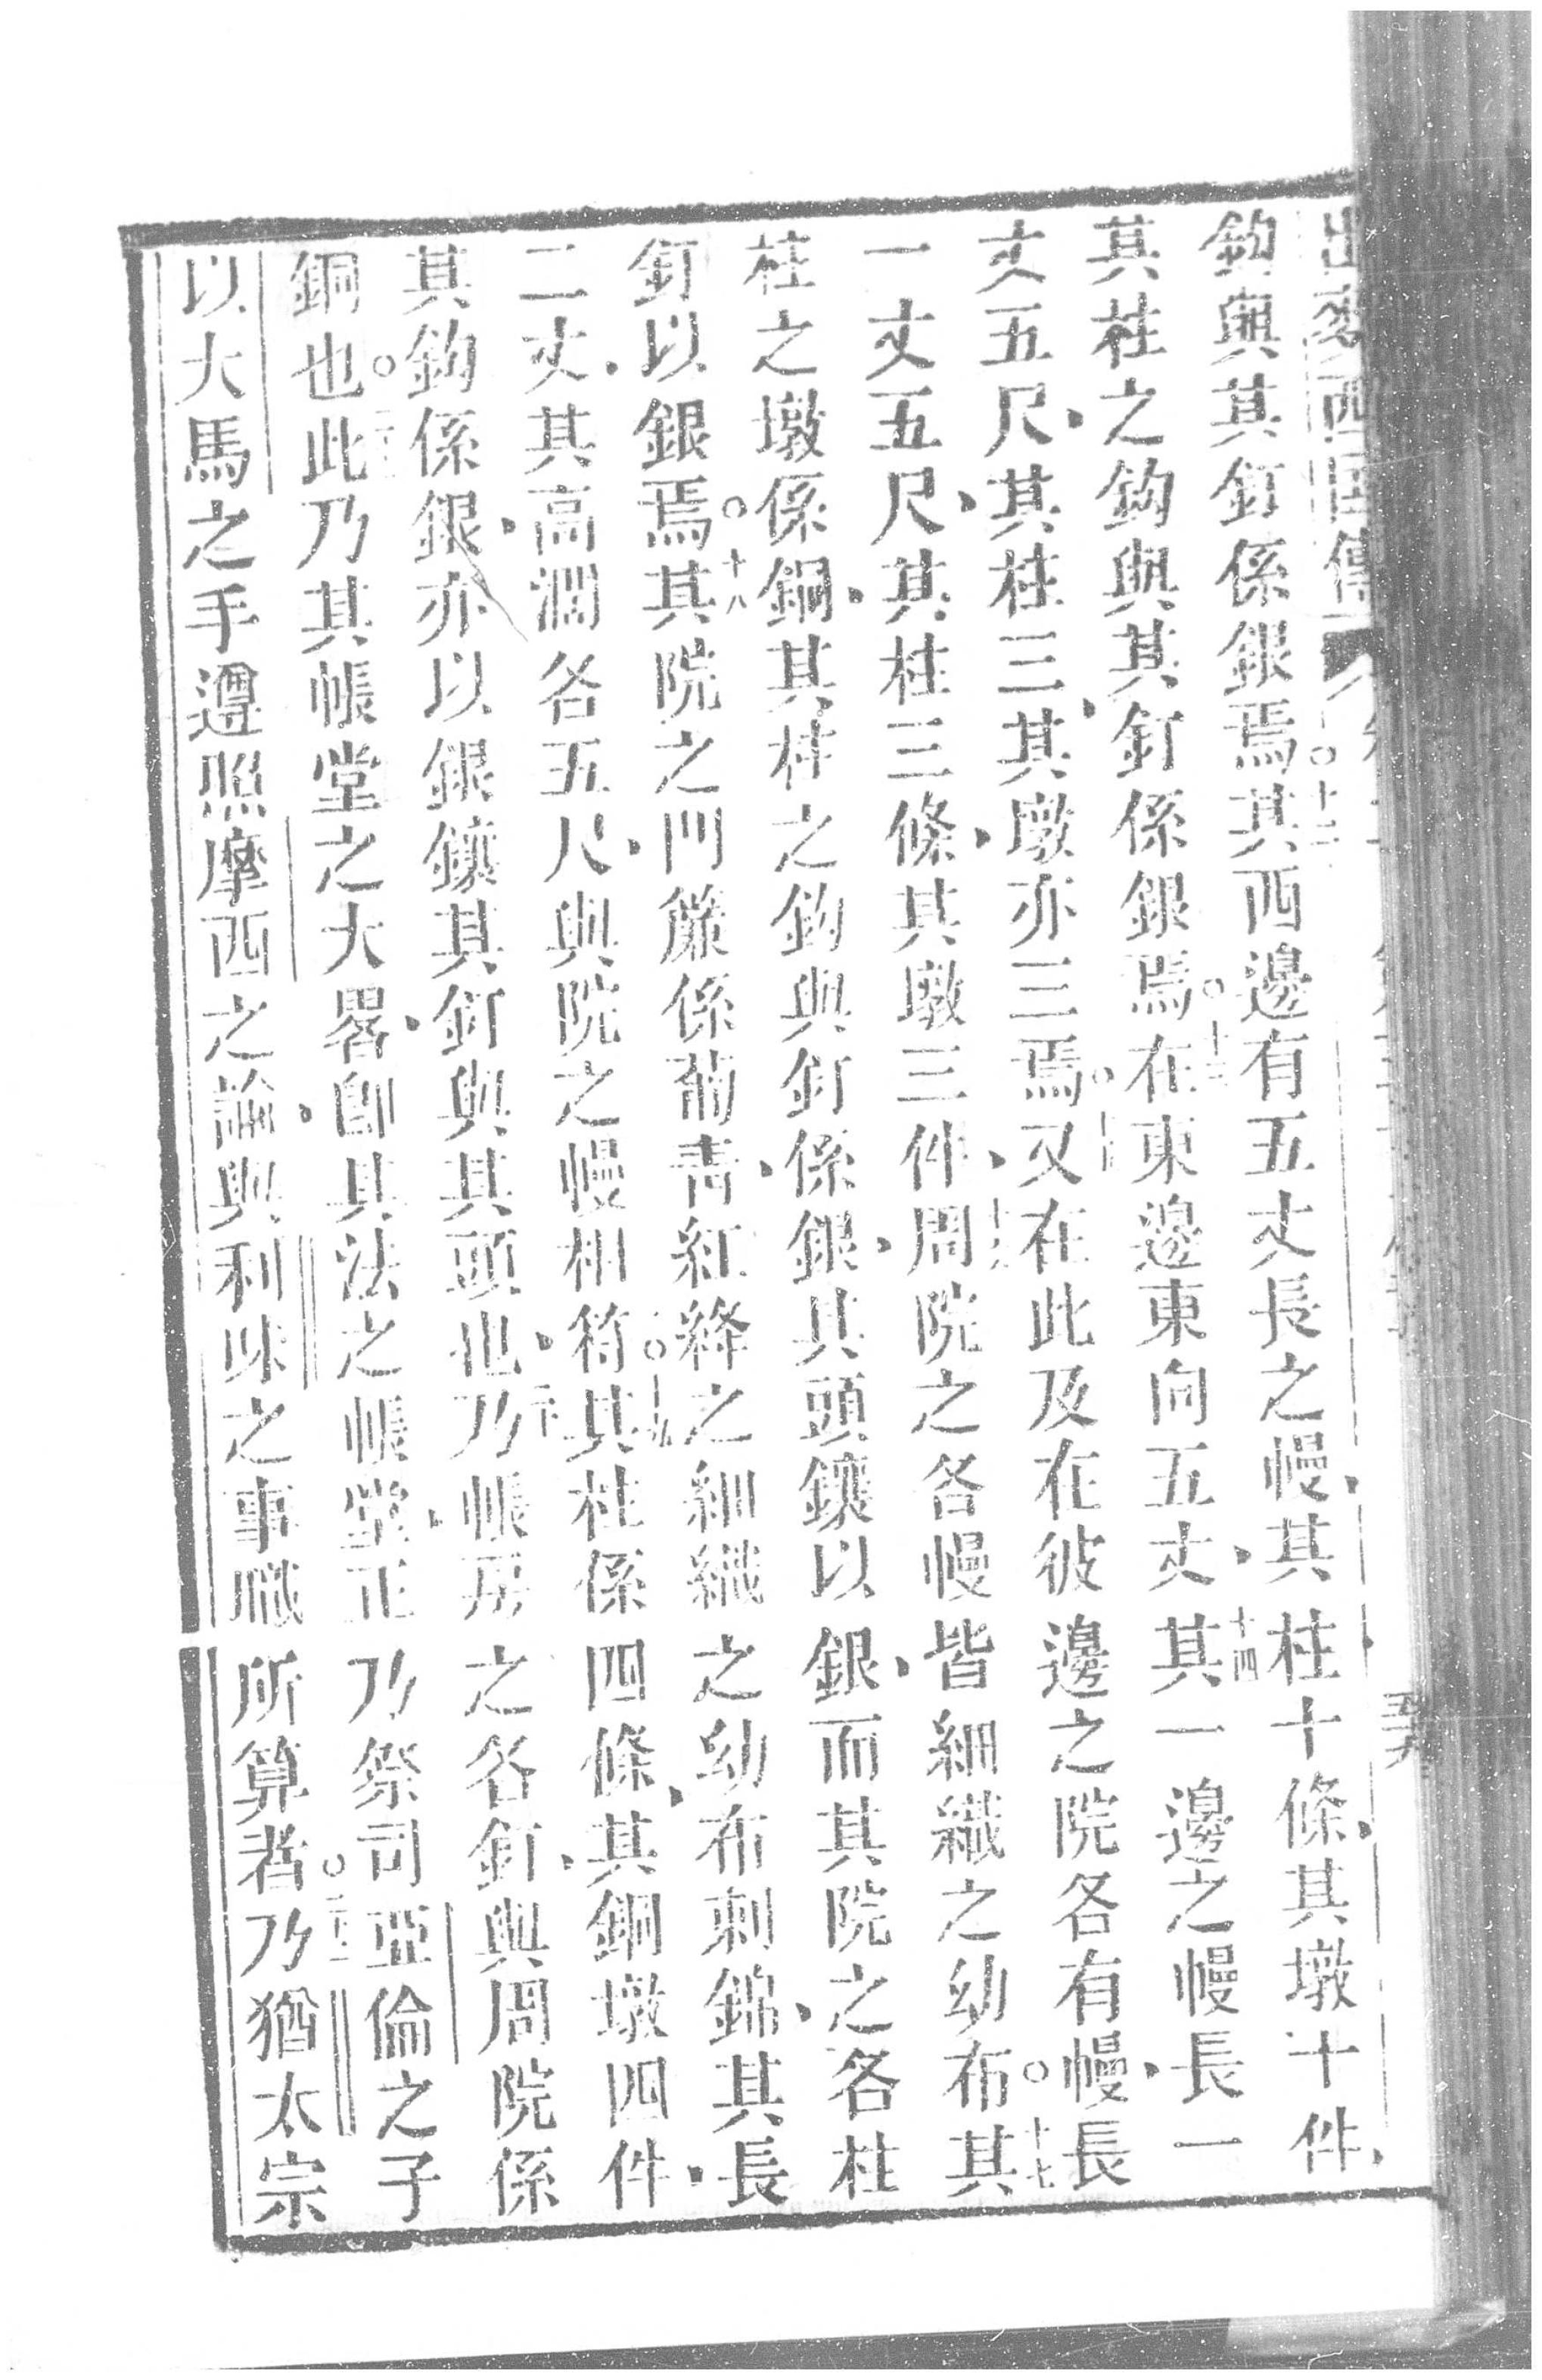 鈎與其釘係銀焉○十二其西邊有五丈長之幔、其柱十條、其墩十件、
其柱之鈎與其釘係銀焉○十三在東邊東向五丈、十四其一邊之幔長一
丈五尺、其柱三、其墩亦三焉○十五又在此及在彼邊之院各有幔、長
一丈五尺、其柱三條、其墩三件、十六周院之各幔皆細織之幼布○十七其
柱之墩係銅、其柱之鈎與釘係銀、其頭鑲以銀、而其院之各柱
釘以銀焉○十八其院之門簾係葡青、紅絳之細織之幼布刺錦、其長
二丈、其高濶各五尺、與院之幔相符○十九其柱係四條、其銅墩四件、
其鈎係銀、亦以銀鑲其釘與其頭也、二十乃帳房之各釘、與周院係
銅也○二十一此乃其帳堂之大畧、卽其法之帳堂、正乃祭司亞倫之子
以大馬之手遵照摩西之諭、與利味之事職所算者○二十二乃猶太宗